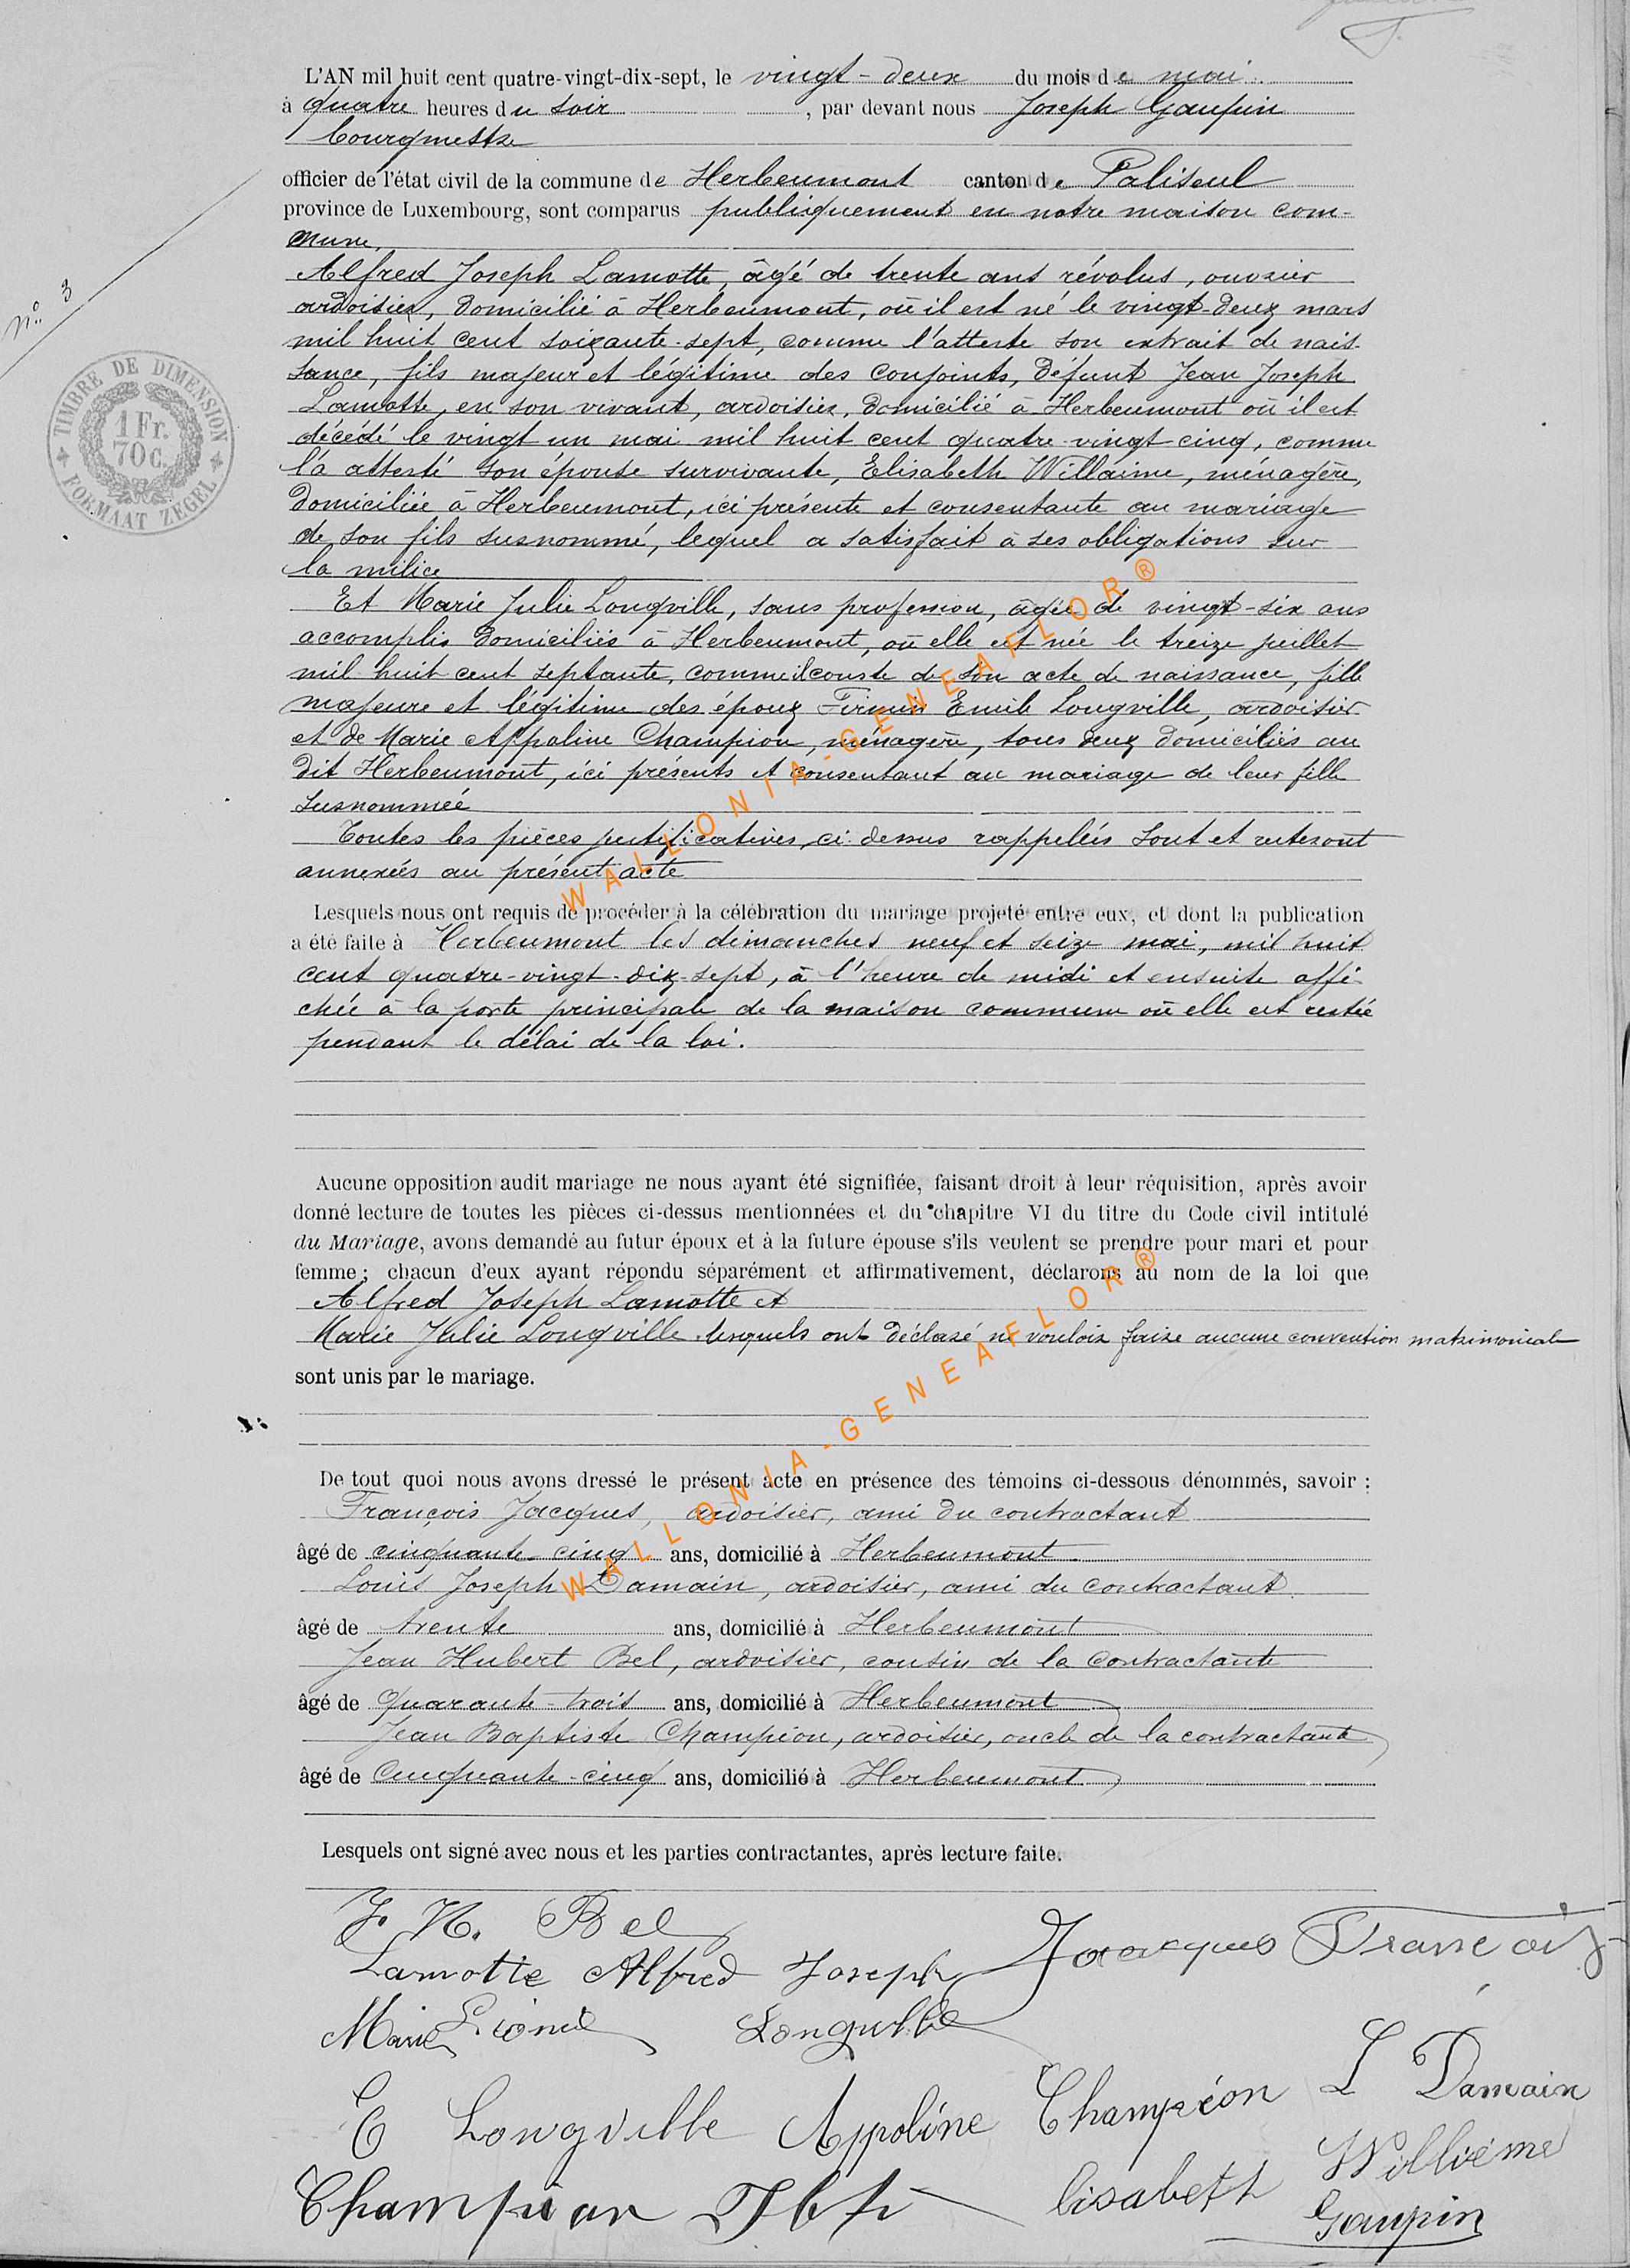 L'AN mil huit cent quatre-vingt-dix-sept, le vingt-deux du mois de mai
à quatre heures du soir, par devant nous Joseph Gaupin
bourgmestre
officier de l'état civil de la commune de Herbeumont canton de Paliseul
province de Luxembourg, sont comparus publiquement en notre maison com-
mune,
Alfred Joseph Lamotte, âgé de trente ans révolus, ouvrier
ardoisier, domicilié à Herbeumont, où il est né le vingt-deux mars
mil huit cent soixante-sept, comme l'atteste son extrait de nais-
sance, fils majeur et légitime des conjoints, défunt Jean Joseph
Lamotte, en son vivant, ardoisier, domicilié à Herbeumont où il est
décédé le vingt un mai mil huit cent quatre-vingt cinq, comme
l'a attesté son épouse survivante, Elisabeth Willaime, ménagère,
domiciliée à Herbeumont, ici présente et consentante au mariage
de son fils susnommé, lequel a satisfait à ses obligations sur
la milice
Et Marie Julie Longville, sans profession, âgée de vingt-six ans
accomplis domiciliée à Herbeumont, où elle est née le treize juillet
mil huit cent septante, comme il conste de son acte de naissance, fille
majeure et légitime des époux Firmin Emile Longville, ardoisier
et de Marie Appoline Champion, ménagère, tous deux domiciliés au
dit Herbeumont, ici présents et consentant au mariage de leur fille
susnommée
Toutes les pièces justificatives, ci-dessus rappelées sont et resteront
annexées au présent acte
Lesquels nous ont requis de procéder à la célébration du mariage projeté entre eux, et dont la publication
a été faite à Herbeumont les dimanches neuf et seize mai, mil huit
cent quatre-vingt-dix-sept, à l'heure de midi et ensuite affi-
chée à la porte principale de la maison commune où elle est restée
pendant le délai de la loi.
Aucune opposition audit mariage ne nous ayant été signifiée, faisant droit à leur réquisition, après avoir
donné lecture de toutes les pièces ci-dessus mentionnées et du chapitre VI du titre du Code civil intitulé
du Mariage, avons demandé au futur époux et à la future épouse s'ils veulent se prendre pour mari et pour
femme; chacun d'eux ayant répondu séparément et affirmativement, déclarons au nom de la loi que
Alfred Joseph Lamotte et
Marie Julie Longville lesquels ont déclaré ne vouloir faire aucune convention matrimoniale
sont unis par le mariage.
De tout quoi nous avons dressé le présent acte en présence des témoins ci-dessous dénommés, savoir :
François Jacques, ardoisier, ami du contractant
âgé de cinquante-cinq ans, domicilié à Herbeumont
Louis Joseph Damain, ardoisier, ami du contractant
âgé de trente ans, domicilié à Herbeumont
Jean Hubert Bel, ardoisier, cousin de la contractante
âgé de quarante-trois ans, domicilié à Herbeumont
Jean Baptiste Champion, ardoisier, oncle de la contractante
âgé de cinquante-cinq ans, domicilié à Herbeumont
Lesquels ont signé avec nous et les parties contractantes, après lecture faite.
J. H. Bel
Lamotte Alfred Joseph
Marie Longville
E Longville Appoline Champion L Damain
Champion
Gaupin
N° 3
TIMBRE DE DIMENSION
1 Fr.
70 c.
FORMAAT ZEGEL
WALLONIA-GENEAFLOR®
WALLONIA-GENEAFLOR®